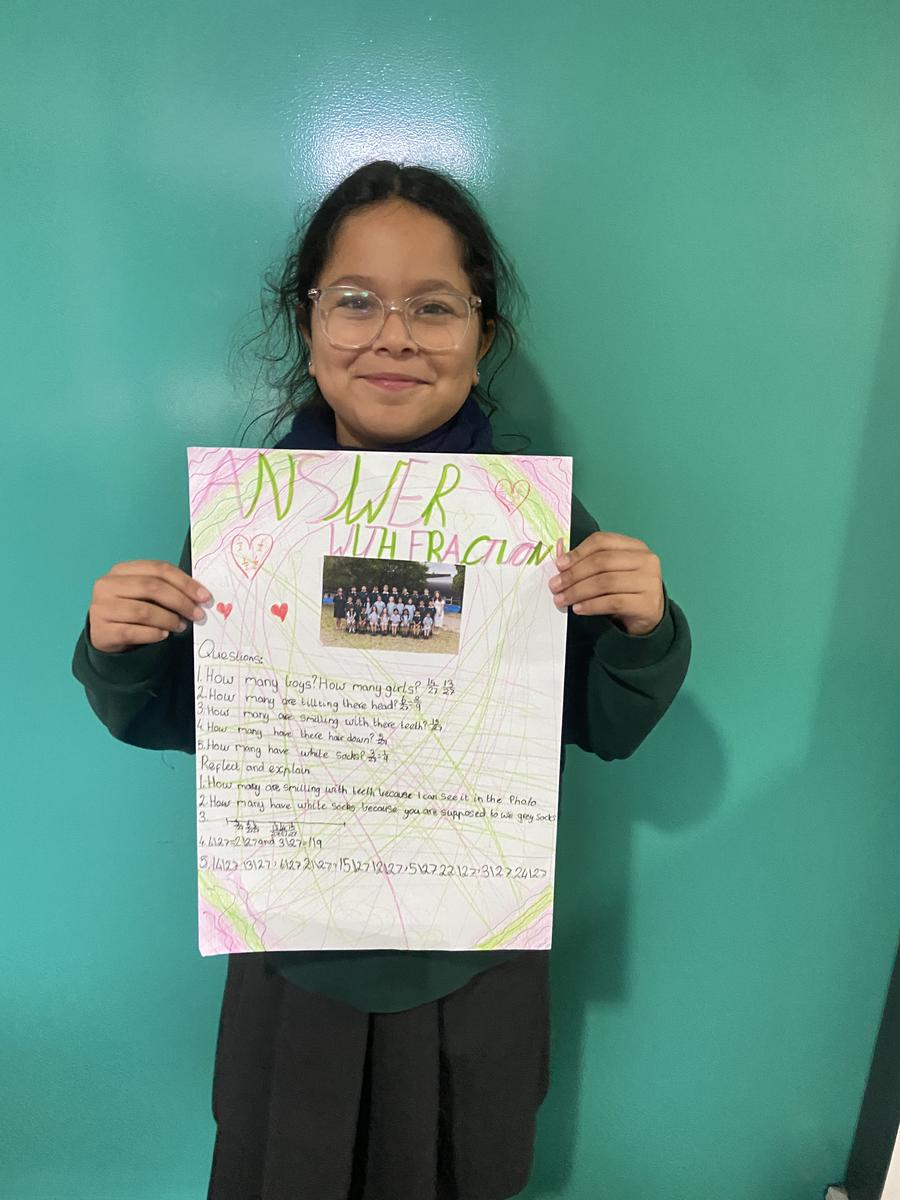 ANSWER
WITH FRACTIONS
Questions:
1. How many boys? How many girls? 14/27 13/27
2. How many are tillting there head? 6/27=2/9
3. How many are smilling with there teeth?
4. How many have there hair down?
5. How many have white socks? 3/27=1/9
Reflect and explain
1. How many are smilling with teeth because I can see it in the Photo
2. How many have white socks, because you are supposed to we grey socks
3.
4. 6\27=2\27 and 3\27=1\9
5. 14\27 13\27, 6\27 21\27, 15\27 12\27, 5\27 22\27, 3\27 24\27